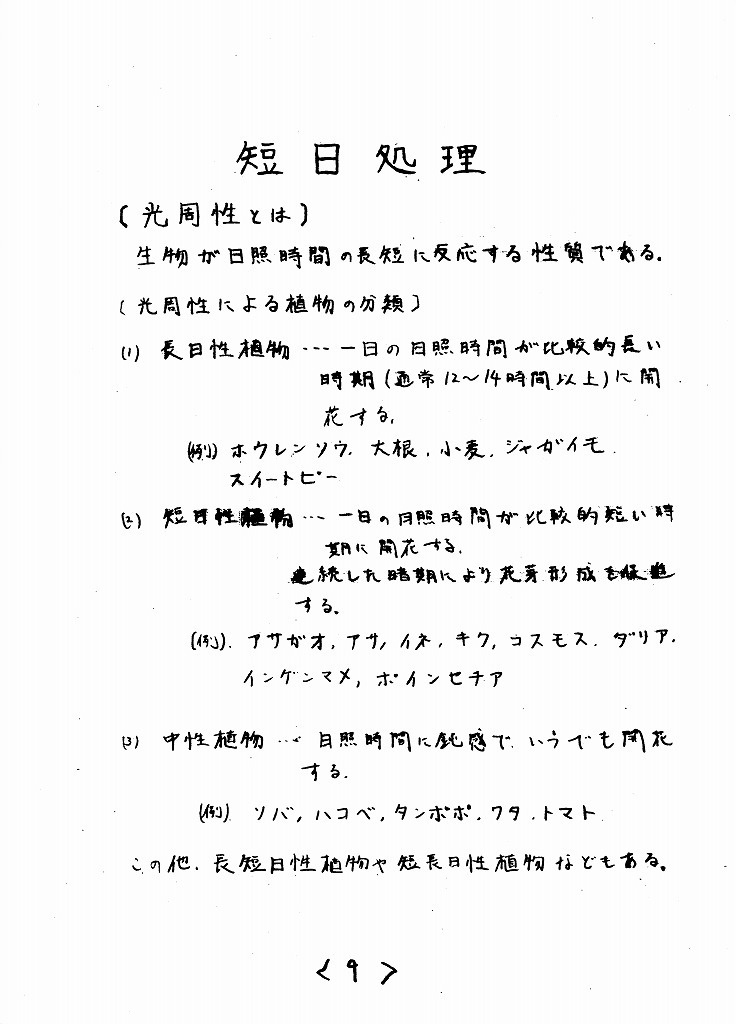 短日処理
〔光周性とは〕
生物が日照時間の長短に反応する性質である。
〔光周性による植物の分類〕
(1) 長日性植物 … 一日の日照時間が比較的長い
時期(通常12〜14時間以上)に開
花する。
(例) ホウレンソウ、大根、小麦、ジャガイモ
スイートピー
(2) 短日性植物 … 一日の日照時間が比較的短い時
期に開花する。
連続した暗期により花芽形成を促進
する。
(例)、アサガオ、アサ、イネ、キク、コスモス、ダリア、
インゲンマメ、ポインセチア
(3) 中性植物 … 日照時間に鈍感で、いつでも開花
する。
(例) ソバ、ハコベ、タンポポ、ワタ、トマト
この他、長短日性植物や短長日性植物などもある。
<9>